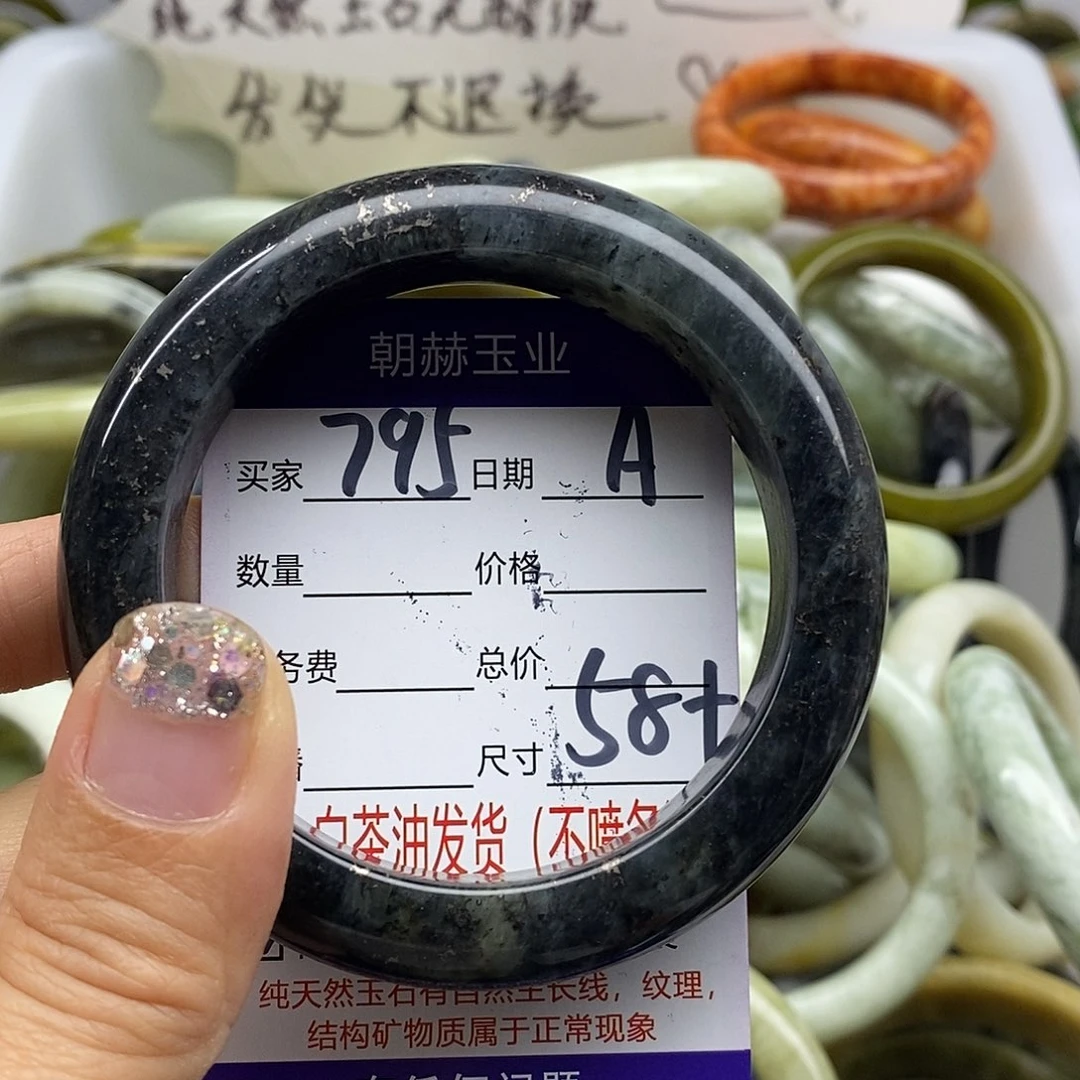 纯天然玉石无醛胶
售出不退换
朝赫玉业
买家 795 日期 A
数量 价格
务费 总价
尺寸 58+
白茶油发货（不喷
纯天然玉石有自然生长线，纹理，
结构矿物质属于正常现象